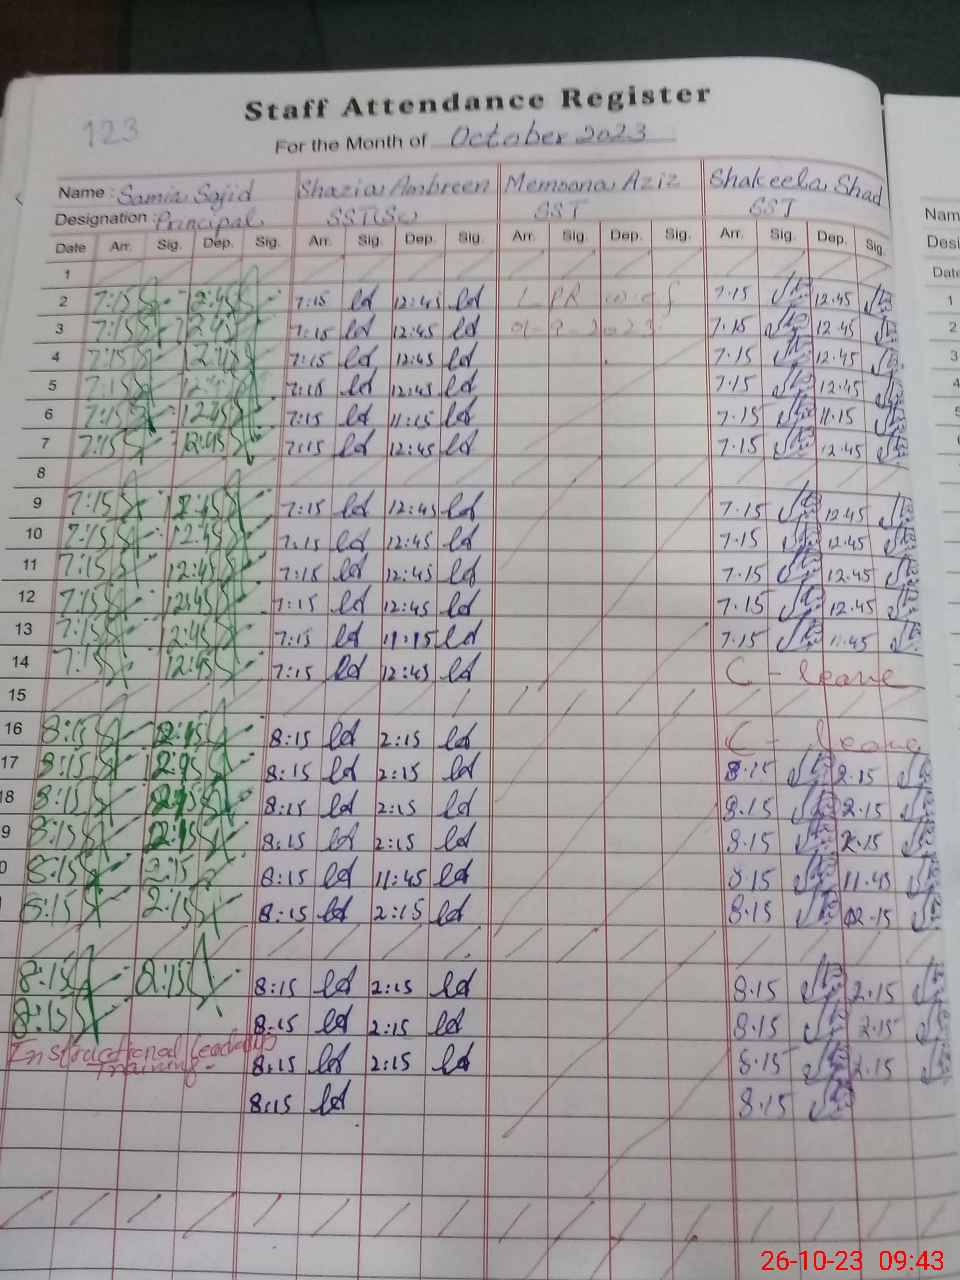 Staff Attendance Register
123
For the Month of October 2023
Name : Samia Sajid Shazia Ambreen Memoona Aziz Shakeela Shad Nam
Designation : Principal SST(Sc) SST SST Desi
Date Arr. Sig. Dep. Sig. Arr. Sig. Dep. Sig. Arr. Sig. Dep. Sig. Arr. Sig. Dep. Sig. Date
1
2 7:15 12:45 7:15 12:45 LPR w.e.f 7.15 12.45 1
3 7:15 12:45 7:15 12:45 01-9-2023 7.15 12.45 2
4 7:15 12:45 7:15 12:45 7.15 12.45 3
5 7:15 12:45 7:15 12:45 7.15 12.45 4
6 7:15 12:45 7:15 11:15 7.15 11.15 5
7 7:15 12:45 7:15 12:45 7.15 12.45
8
9 7:15 12:45 7:15 12:45 7.15 12.45
10 7:15 12:45 7:15 12:45 7.15 12.45
11 7:15 12:45 7:15 12:45 7.15 12.45
12 7:15 12:45 7:15 12:45 7.15 12.45
13 7:15 12:45 7:15 11:15 7.15 11.45
14 7:15 12:45 7:15 12:45 C - leave
15
16 8:15 2:15 8:15 2:15 C - leave
17 8:15 2:15 8:15 2:15 8.15 2.15
18 8:15 2:15 8:15 2:15 8.15 2.15
9 8:15 2:15 8:15 2:15 8.15 2.15
0 8:15 2:15 8:15 11:45 8.15 11.45
8:15 2:15 8:15 2:15 8.15 2.15
8:15 2:15 8:15 2:15 8.15 2.15
8:15 8:15 2:15 8.15 2.15
Instructional Leadership 8:15 2:15 8.15 2.15
Training- 8:15 8.15
26-10-23 09:43